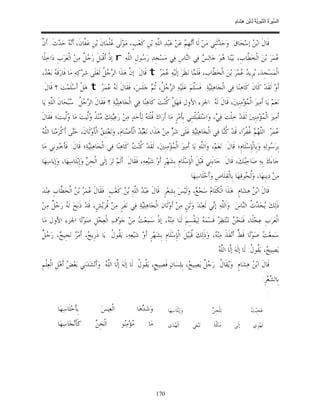 السيرة النبوية لابن هشام
قال ابن إسحاق: وحدثني من لا أتهم عن عبد الله بن كعب، مولى عثمان بن عفان، أنه حدث: أن
عمر بن الخطاب، بينا هو جالس في الناس في مسجد رسول الله r إذ أقبل رجل من العرب داخلا
المسجد، يريد عمر بن الخطاب، فلما نظر إليه عمر t قال: إن هذا الرجل لعلى شركه ما فارقه بعد،
أو لقد كان كاهنا في الجاهلية. فسلم عليه الرجل، ثم جلس، فقال له عمر t: هل أسلمت ؟ قال:
نعم يا أمير المؤمنين، قال له: الجزء الأول فهل كنت كاهنا في الجاهلية ؟ فقال الرجل: سبحان الله يا
أمير المؤمنين لقد خلت في، واستقبلتني بأمر ما أراك قلته لأحد من رعيتك منذ وليت ما وليت؛ فقال
عمر: اللهم غفرا، قد كنا في الجاهلية على شر من هذا، نعبد الأصنام، ونعتنق الأوثان، حتى أكرمنا الله
برسوله وبالإسلام؛ قال: نعم، والله يا أمير المؤمنين، لقد كنت كاهنا في الجاهلية؛ قال: فأخبرني ما
جاءك به صاحبك، قال: جاءني قبيل الإسلام بشهر أو شيعه، فقال: ألم تر إلى الجن وإبلاسها، وإياسها
من دينها، ولحوقها بالقلاص وأحلاسها.
قال ابن هشام: هذا الكلام سجع، وليس بشعر. قال عبد الله بن كعب: فقال عمر بن الخطاب عند
ذلك يحدث الناس: والله إني لعند وثن من أوثان الجاهلية في نفر من قريش، قد ذبح له رجل من
العرب عجلا، فنحن ننتظر قسمه ليقسم لنا منه، إذ سمعت من جوف العجل صوتا الجزء الأول ما
سمعت صوتا قط أنفذ منه، وذلك قبيل الإسلام بشهر أو شيعه، يقول: يا ذريح، أمر نجيح، رجل
يصيح، يقول: لا إله إلا الله.
قال ابن هشام: ويقال: رجل يصيح، بلسان فصيح، يقول: لا إله إلا الله. وأنشدني بعض أهل العلم
بالشعر:
عجبت للجن وإبلاسها وشدها العيس بأحلاسها
تهوي إلى مكة تبغي الهدى ما مؤمنو الجن كأنجاسها
170